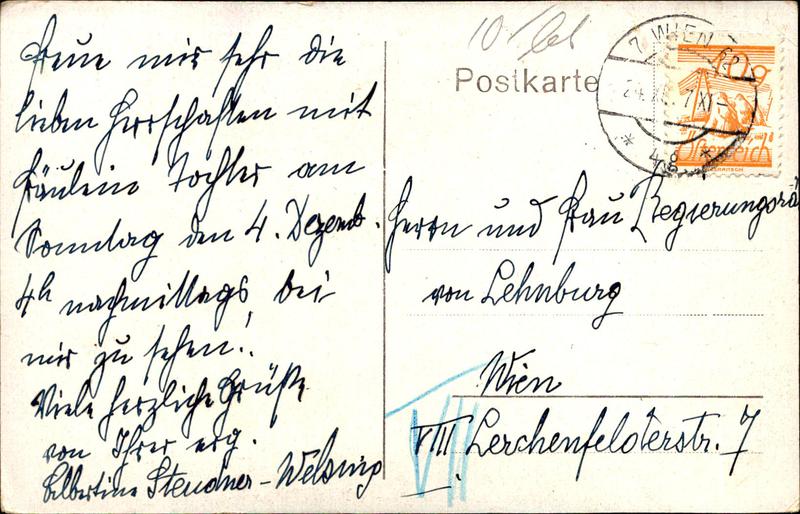 freue mir sehr die
lieben Herrschaften mit
Fräulein Tochter am
Sonntag den 4. Dezemb.
4h nachmittags, bei
mir zu sehen!
Viele herzliche Grüße
von Ihrer erg.
Albertine Steudner-Welsing
Postkarte
7 WIEN 62
24. XI
* 4g *
10g
Österreich
Herrn und Frau Regierungsrat
von Lehnburg
Wien
VIII Lerchenfelderstr. 7
VIII